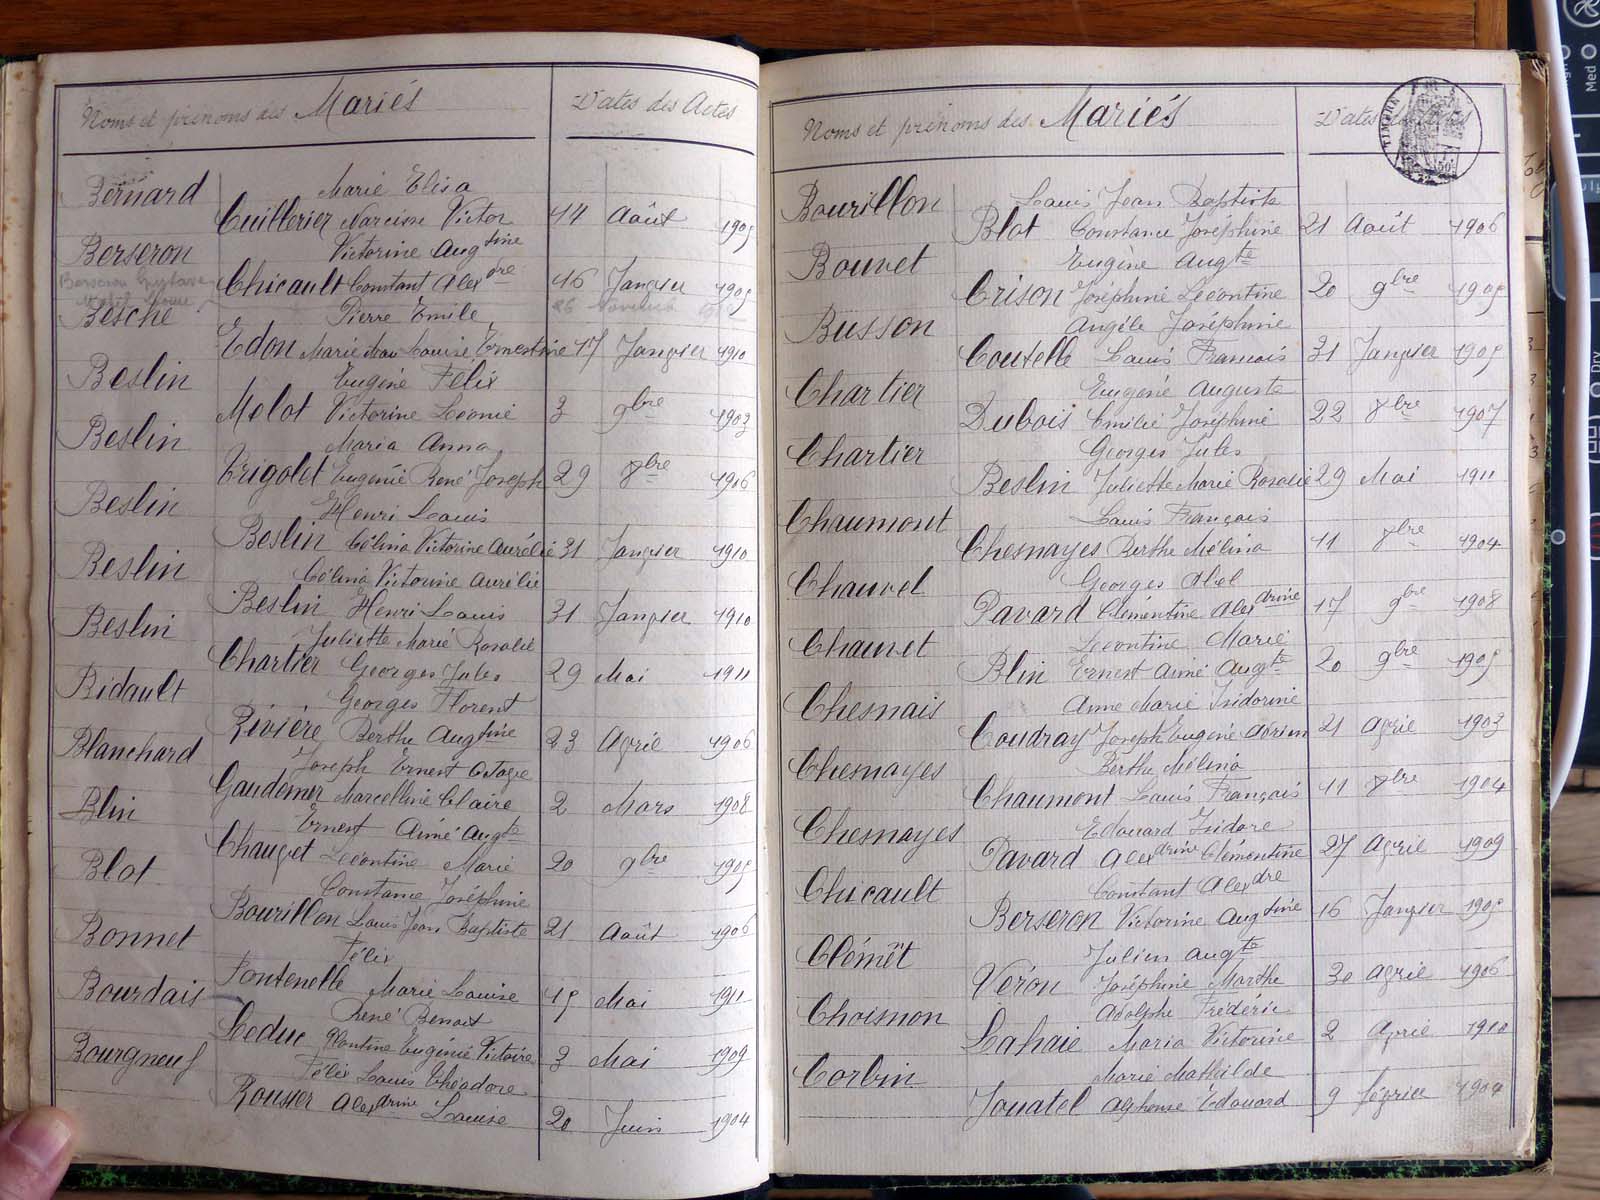 Noms et prénoms des Mariés Dates des Actes
Bernard Marie Elisa
Cuillerier Narcisse Victor 14 Août 1905
Berseron Victorine Augtine
Chicault Constant Alexdre 16 Janvier 1905
Berseron Gustave
26 Novembre
Besche Pierre Emile
Edon Marie Louise Ernestine 17 Janvier 1910
Beslin Eugène Félix
Melot Victorine Léonie 3 9bre 1903
Beslin Maria Anna
Trigolet Eugénie René Joseph 29 8bre 1906
Beslin Henri Louis
Beslin Célina Victorine Aurélie 31 Janvier 1910
Beslin Célina Victorine Aurélie
Beslin Henri Louis 31 Janvier 1910
Beslin Juliette Marie Rosalie
Chartier Georges Jules 29 Mai 1911
Bidault Georges Florent
Rivière Berthe Augtine 23 Avril 1906
Blanchard Joseph Ernest Octave
Gaudemer Marcelline Claire 2 Mars 1908
Blin Ernest Aimé Augte
Chauvet Léontine Marie 20 9bre 1905
Blot Constance Joséphine
Bourillon Louis Jean Baptiste 21 Août 1906
Bonnet Félix
Fontenelle Marie Louise 15 Mai 1911
Bourdais René Benoit
Leduc Eugénie Victoire 3 Mai 1909
Bourgneuf Félix Louis Théodore
Rousier Alexdrine Louise 20 Juin 1904
Noms et prénoms des Mariés Dates des Actes
TIMBRE
Bourillon Louis Jean Baptiste
Blot Constance Joséphine 21 Août 1906
Bouvet Eugène Augte
Crison Joséphine Léontine 20 9bre 1905
Busson Angèle Joséphine
Coutelle Louis François 31 Janvier 1905
Chartier Eugène Auguste
Dubois Emilie Joséphine 22 8bre 1907
Chartier Georges Jules
Beslin Juliette Marie Rosalie 29 Mai 1911
Chaumont Louis François
Chesnayes Berthe Mélina 11 8bre 1904
Chauvel Georges Abel
Pavard Clémentine Alexdrine 17 9bre 1908
Chauvet Léontine Marie
Blin Ernest Aimé Augte 20 9bre 1905
Chesnais Anne Marie Isidorine
Coudray Joseph Eugène Adrien 21 Avril 1903
Chesnayes Berthe Mélina
Chaumont Louis François 11 8bre 1904
Chesnayes Edouard Isidore
Pavard Alexdrine Clémentine 27 Avril 1909
Chicault Constant Alexdre
Berseron Victorine Augtine 16 Janvier 1905
Clémêt Julien Augte
Véron Joséphine Marthe 30 Avril 1906
Choisnon Adolphe Frédéric
Lahaie Maria Victorine 2 Avril 1910
Corbin Marie Mathilde
Jouatel Alphonse Edouard 9 février 1904